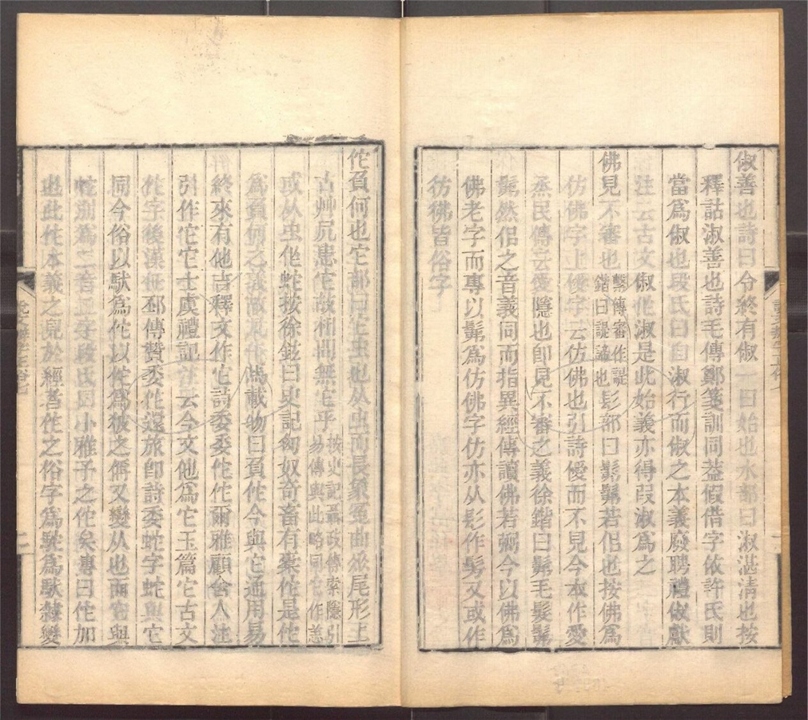 俶善也詩曰令終有俶一曰始也水部曰淑湛清也按
釋詁淑善也詩毛傳鄭箋訓同葢假借字依許氏則
當爲俶也段氏曰自淑行而俶之本義廢聘禮俶獻
注云古文俶作淑是此始義亦得叚淑爲之
佛見不審也繫傳審作諟鍇曰諟諦也髟部曰髴髴若侣也按佛爲
仿佛字上僾字云仿佛也引詩僾而不見今本作愛
烝民傳云愛隱也卽見不審之義徐鍇曰髴毛髮髴
髴然侣之音義同而指異經傳讀佛若弼今以佛爲
佛老字而專以髴爲仿佛字仿亦从髟作髣又或作
彷彿皆俗字
佗負何也它部曰它虫也从虫而長象冤曲𠂹尾形上
古艸尻患它故相問無它乎按史記聶政傳索隱引易傳與此略同它作恙
或从虫作蛇按徐鉉曰史記匈奴奇畜有橐佗是佗
爲負何之義故凡作馱載物曰負佗今與它通用易
終來有他吉釋文作它詩委委佗佗爾雅顧舍人注
引作佗它士虞禮記注云今文他爲它玉篇它古文
佗字後漢任邳傳贊委佗還旅卽詩委蛇字蛇與它
同今俗以馱爲佗以佗爲彼之偁又變从也而它與
蛇別爲二音二字段氏曰小雅予之佗矣傳曰佗加
也此佗本義之見於經者佗之俗字爲駝爲馱隸變